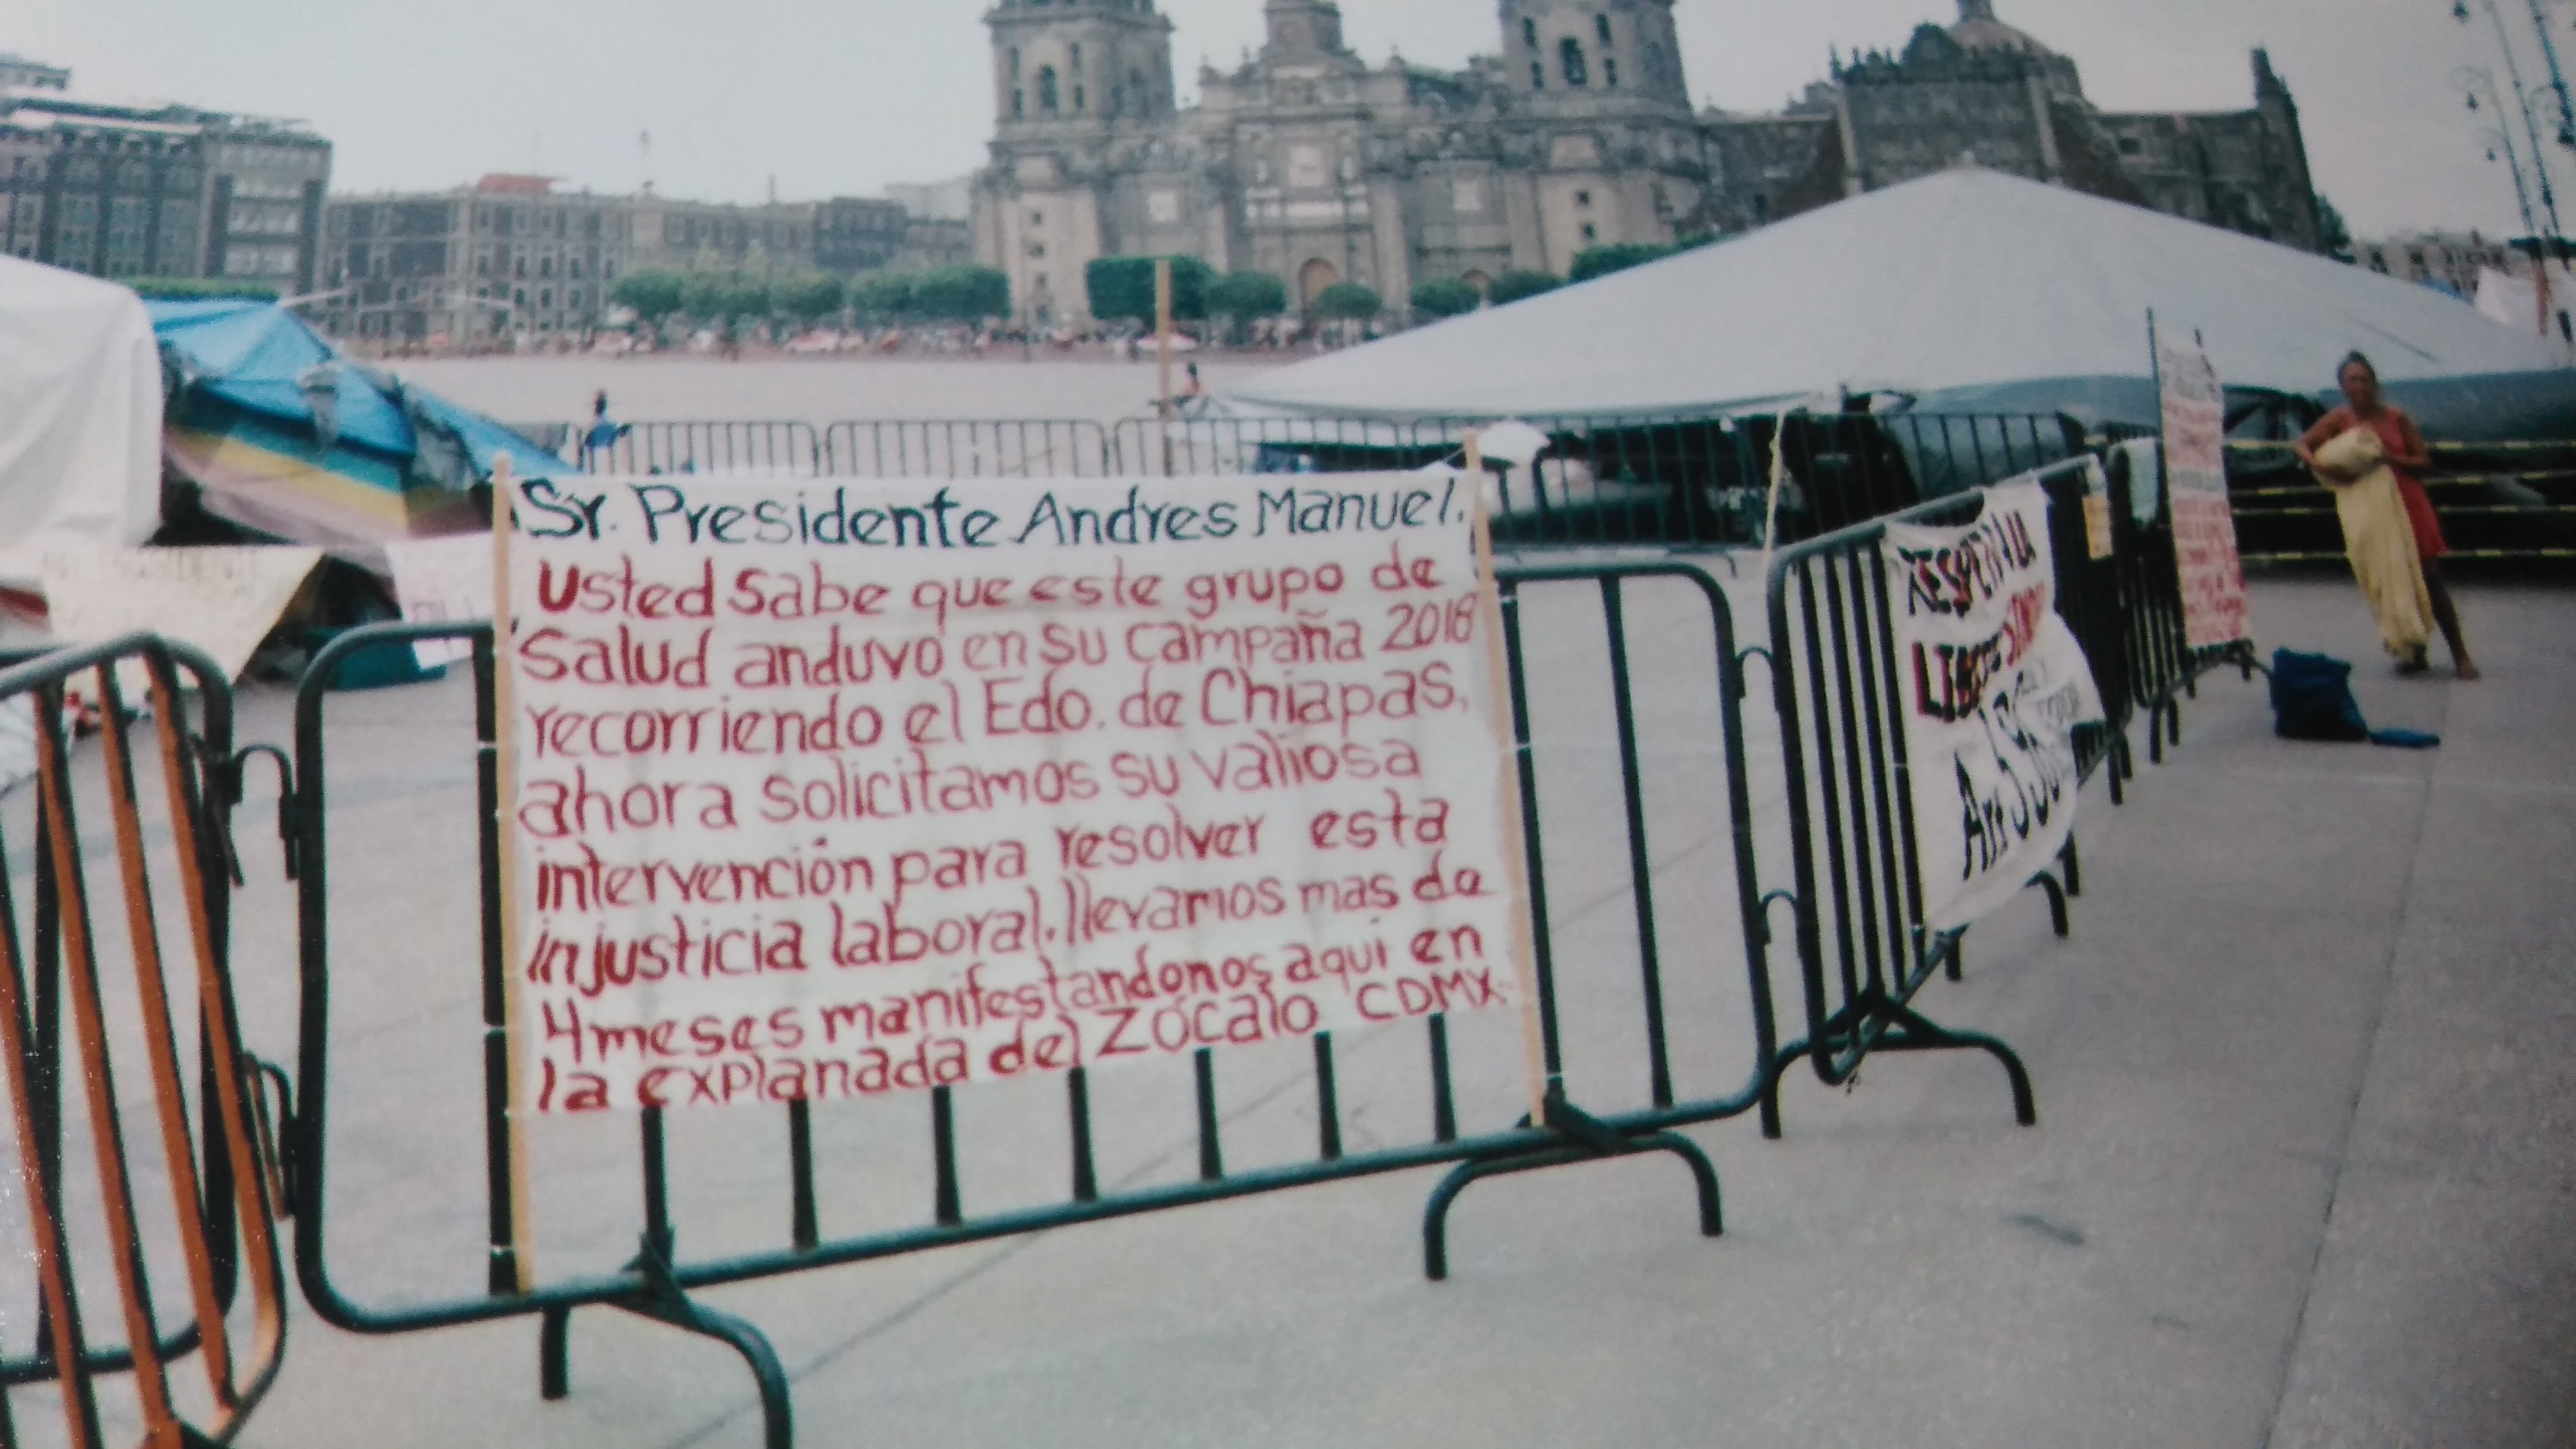 Sr. Presidente Andres Manuel.
Usted Sabe que este grupo de
Salud anduvo en su campaña 2018
recorriendo el Edo. de Chiapas,
ahora solicitamos su valiosa
intervención para resolver esta
injusticia laboral. llevamos mas de
4 meses manifestandonos aqui en
la explanada del Zócalo CDMX.
LA